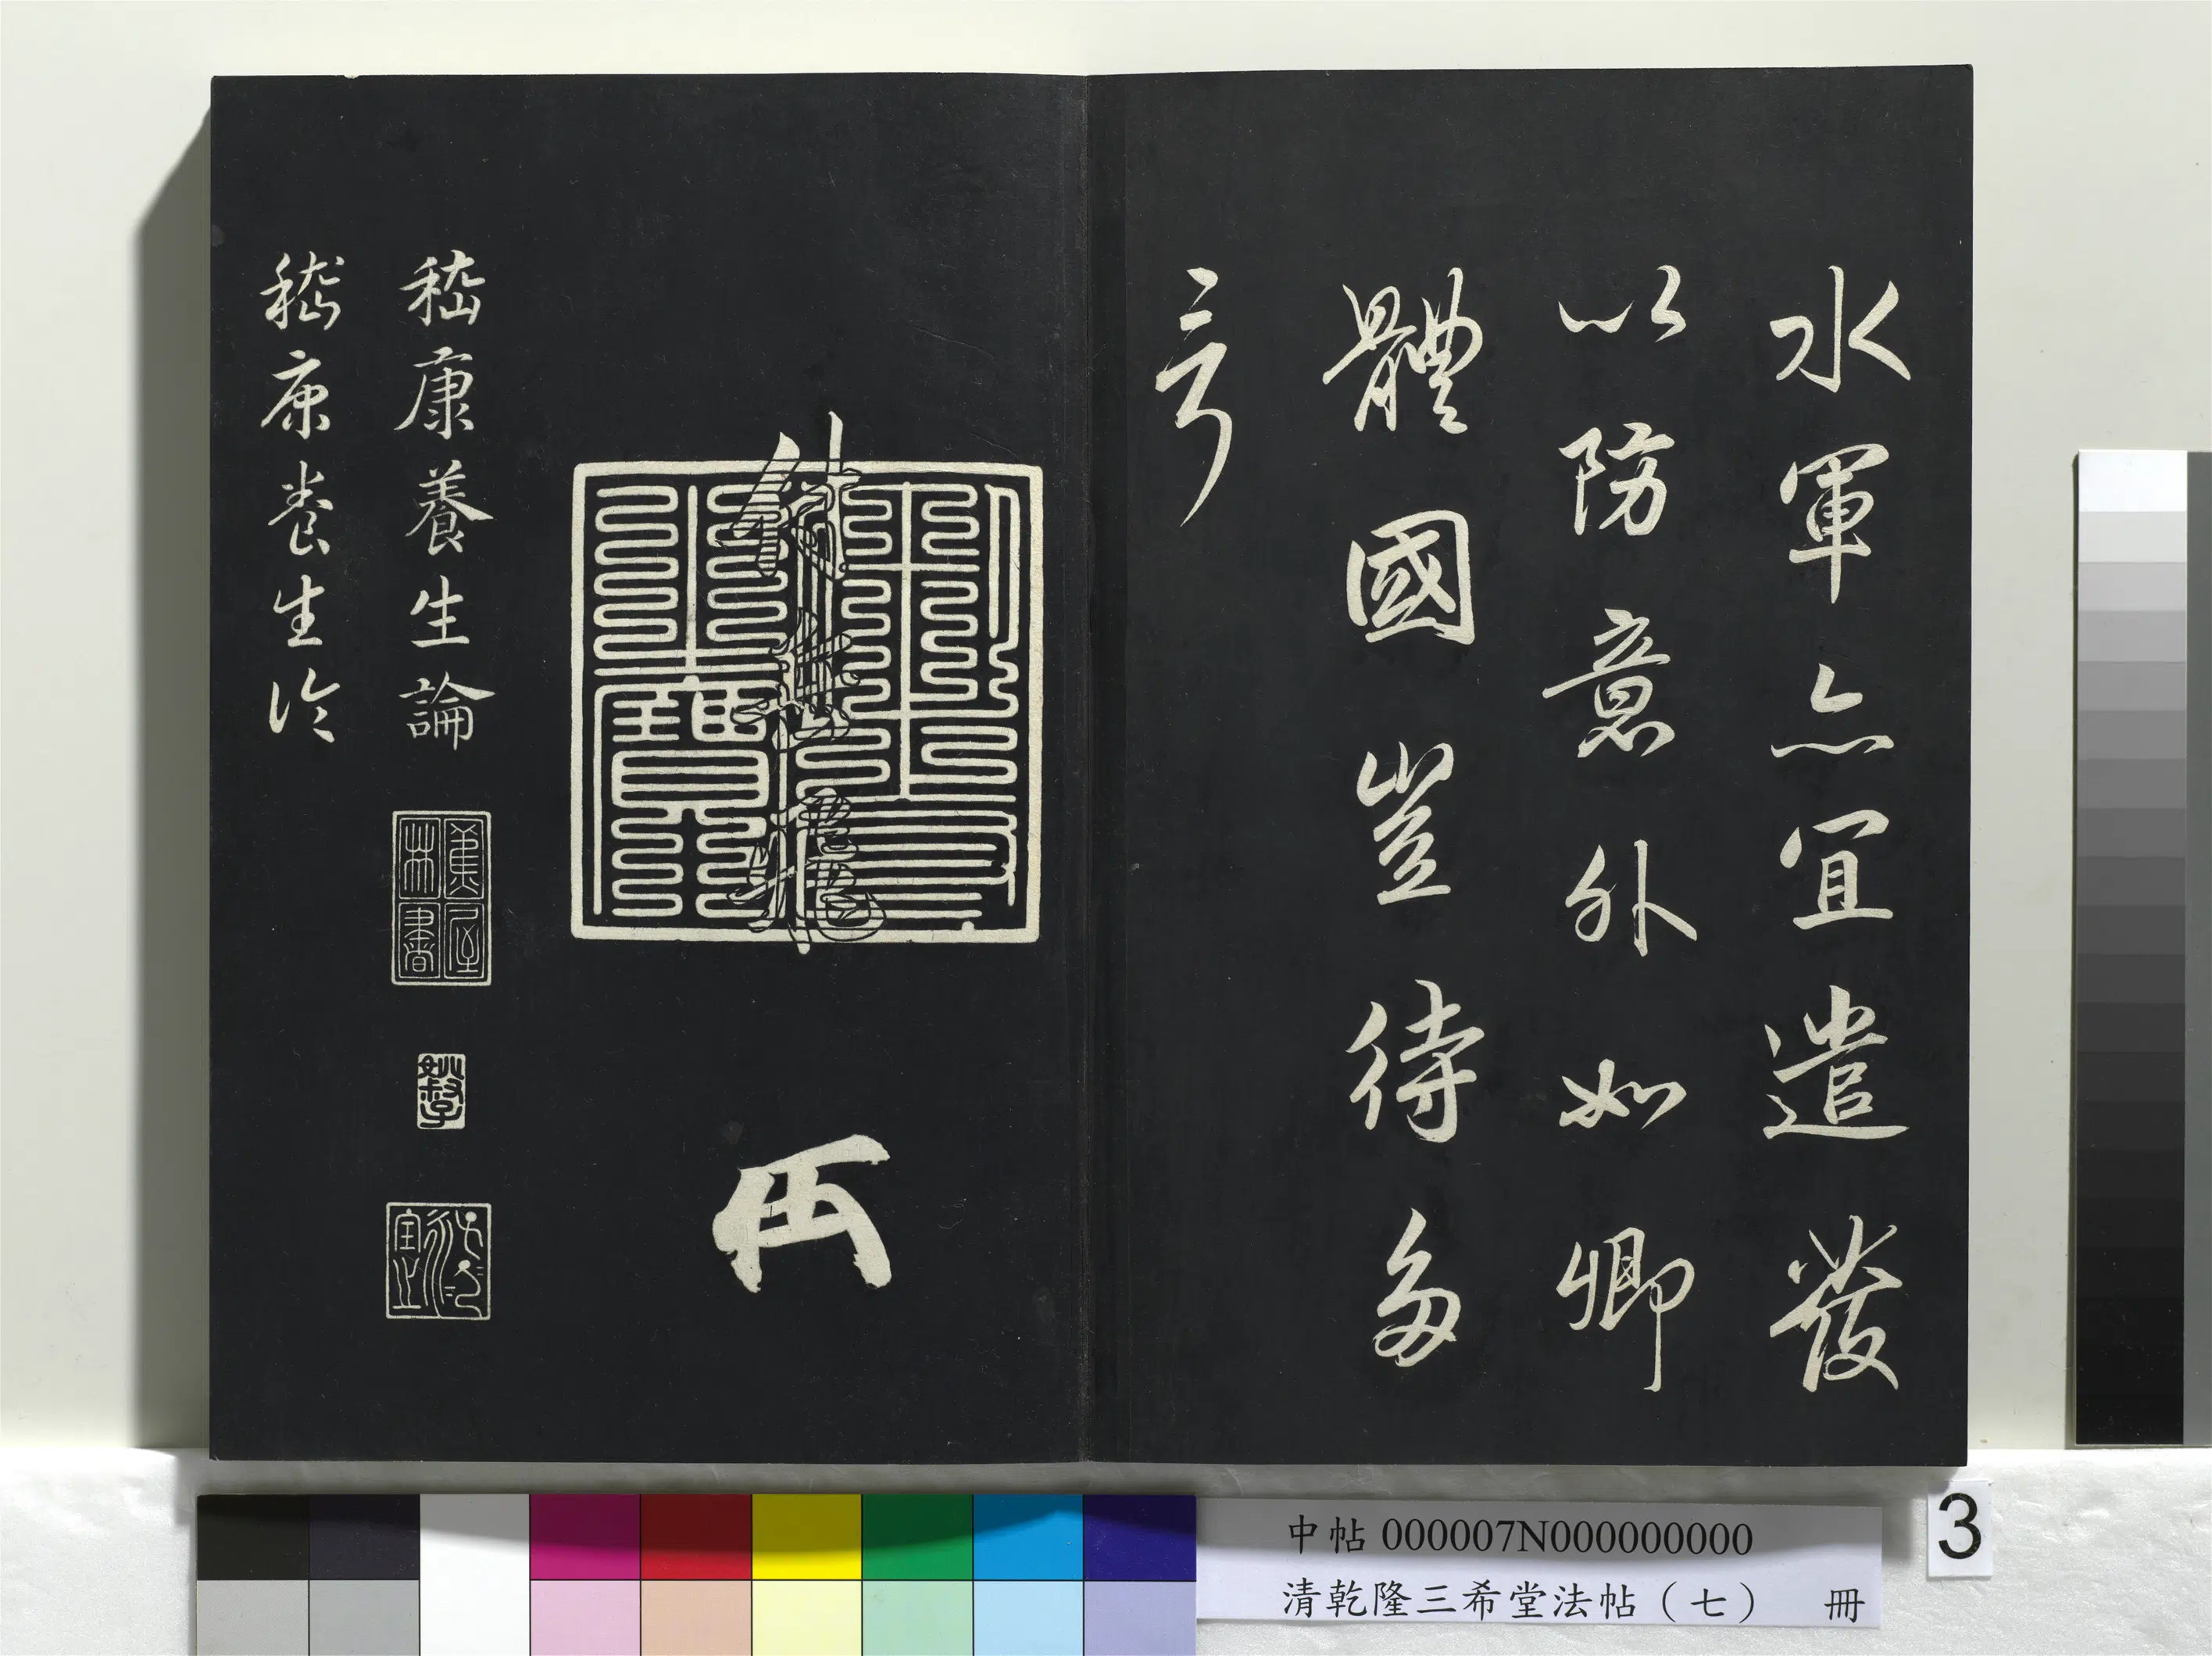 水軍亦宜遣發
以防意外如卿
體國豈待多
言
付岳飛
嵇康養生論
嵇康養生論
中帖 000007N000000000
清乾隆三希堂法帖（七） 冊
3